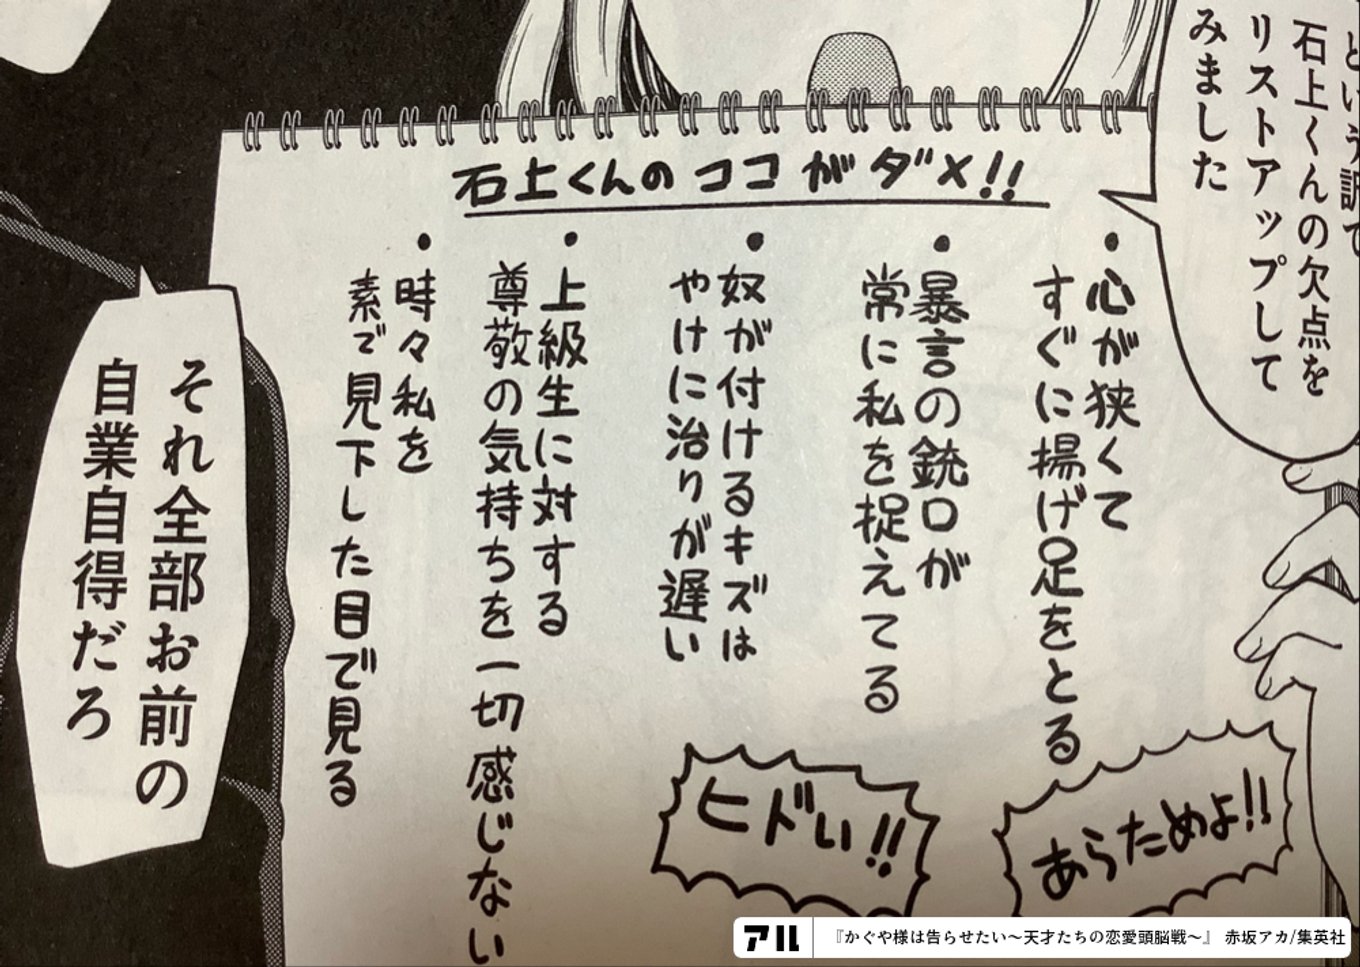 という訳で
石上くんの欠点を
リストアップして
みました
石上くんのココがダメ!!
・心が狭くて
すぐに揚げ足をとる
・暴言の銃口が
常に私を捉えてる
・奴が付けるキズは
やけに治りが遅い
・上級生に対する
尊敬の気持ちを一切感じない
・時々私を
素で見下した目で見る
あらためよ!!
ヒドい!!
それ全部お前の
自業自得だろ
アル
『かぐや様は告らせたい〜天才たちの恋愛頭脳戦〜』 赤坂アカ/集英社